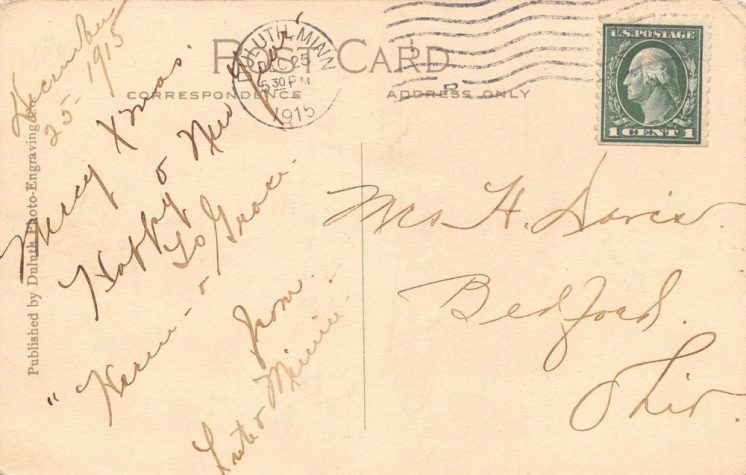 POST CARD
CORRESPONDENCE
ADDRESS ONLY
DULUTH, MINN
DEC 25
5 30 PM
1915
U.S. POSTAGE
1 CENT 1
Published by Duluth Photo-Engraving Co.
December
25 - 1915
Merry Xmas.
Happy & New Year
To Grace.
" Herm - &
from.
& Minnie.
H. Davis.
Bedford.
Ohio.